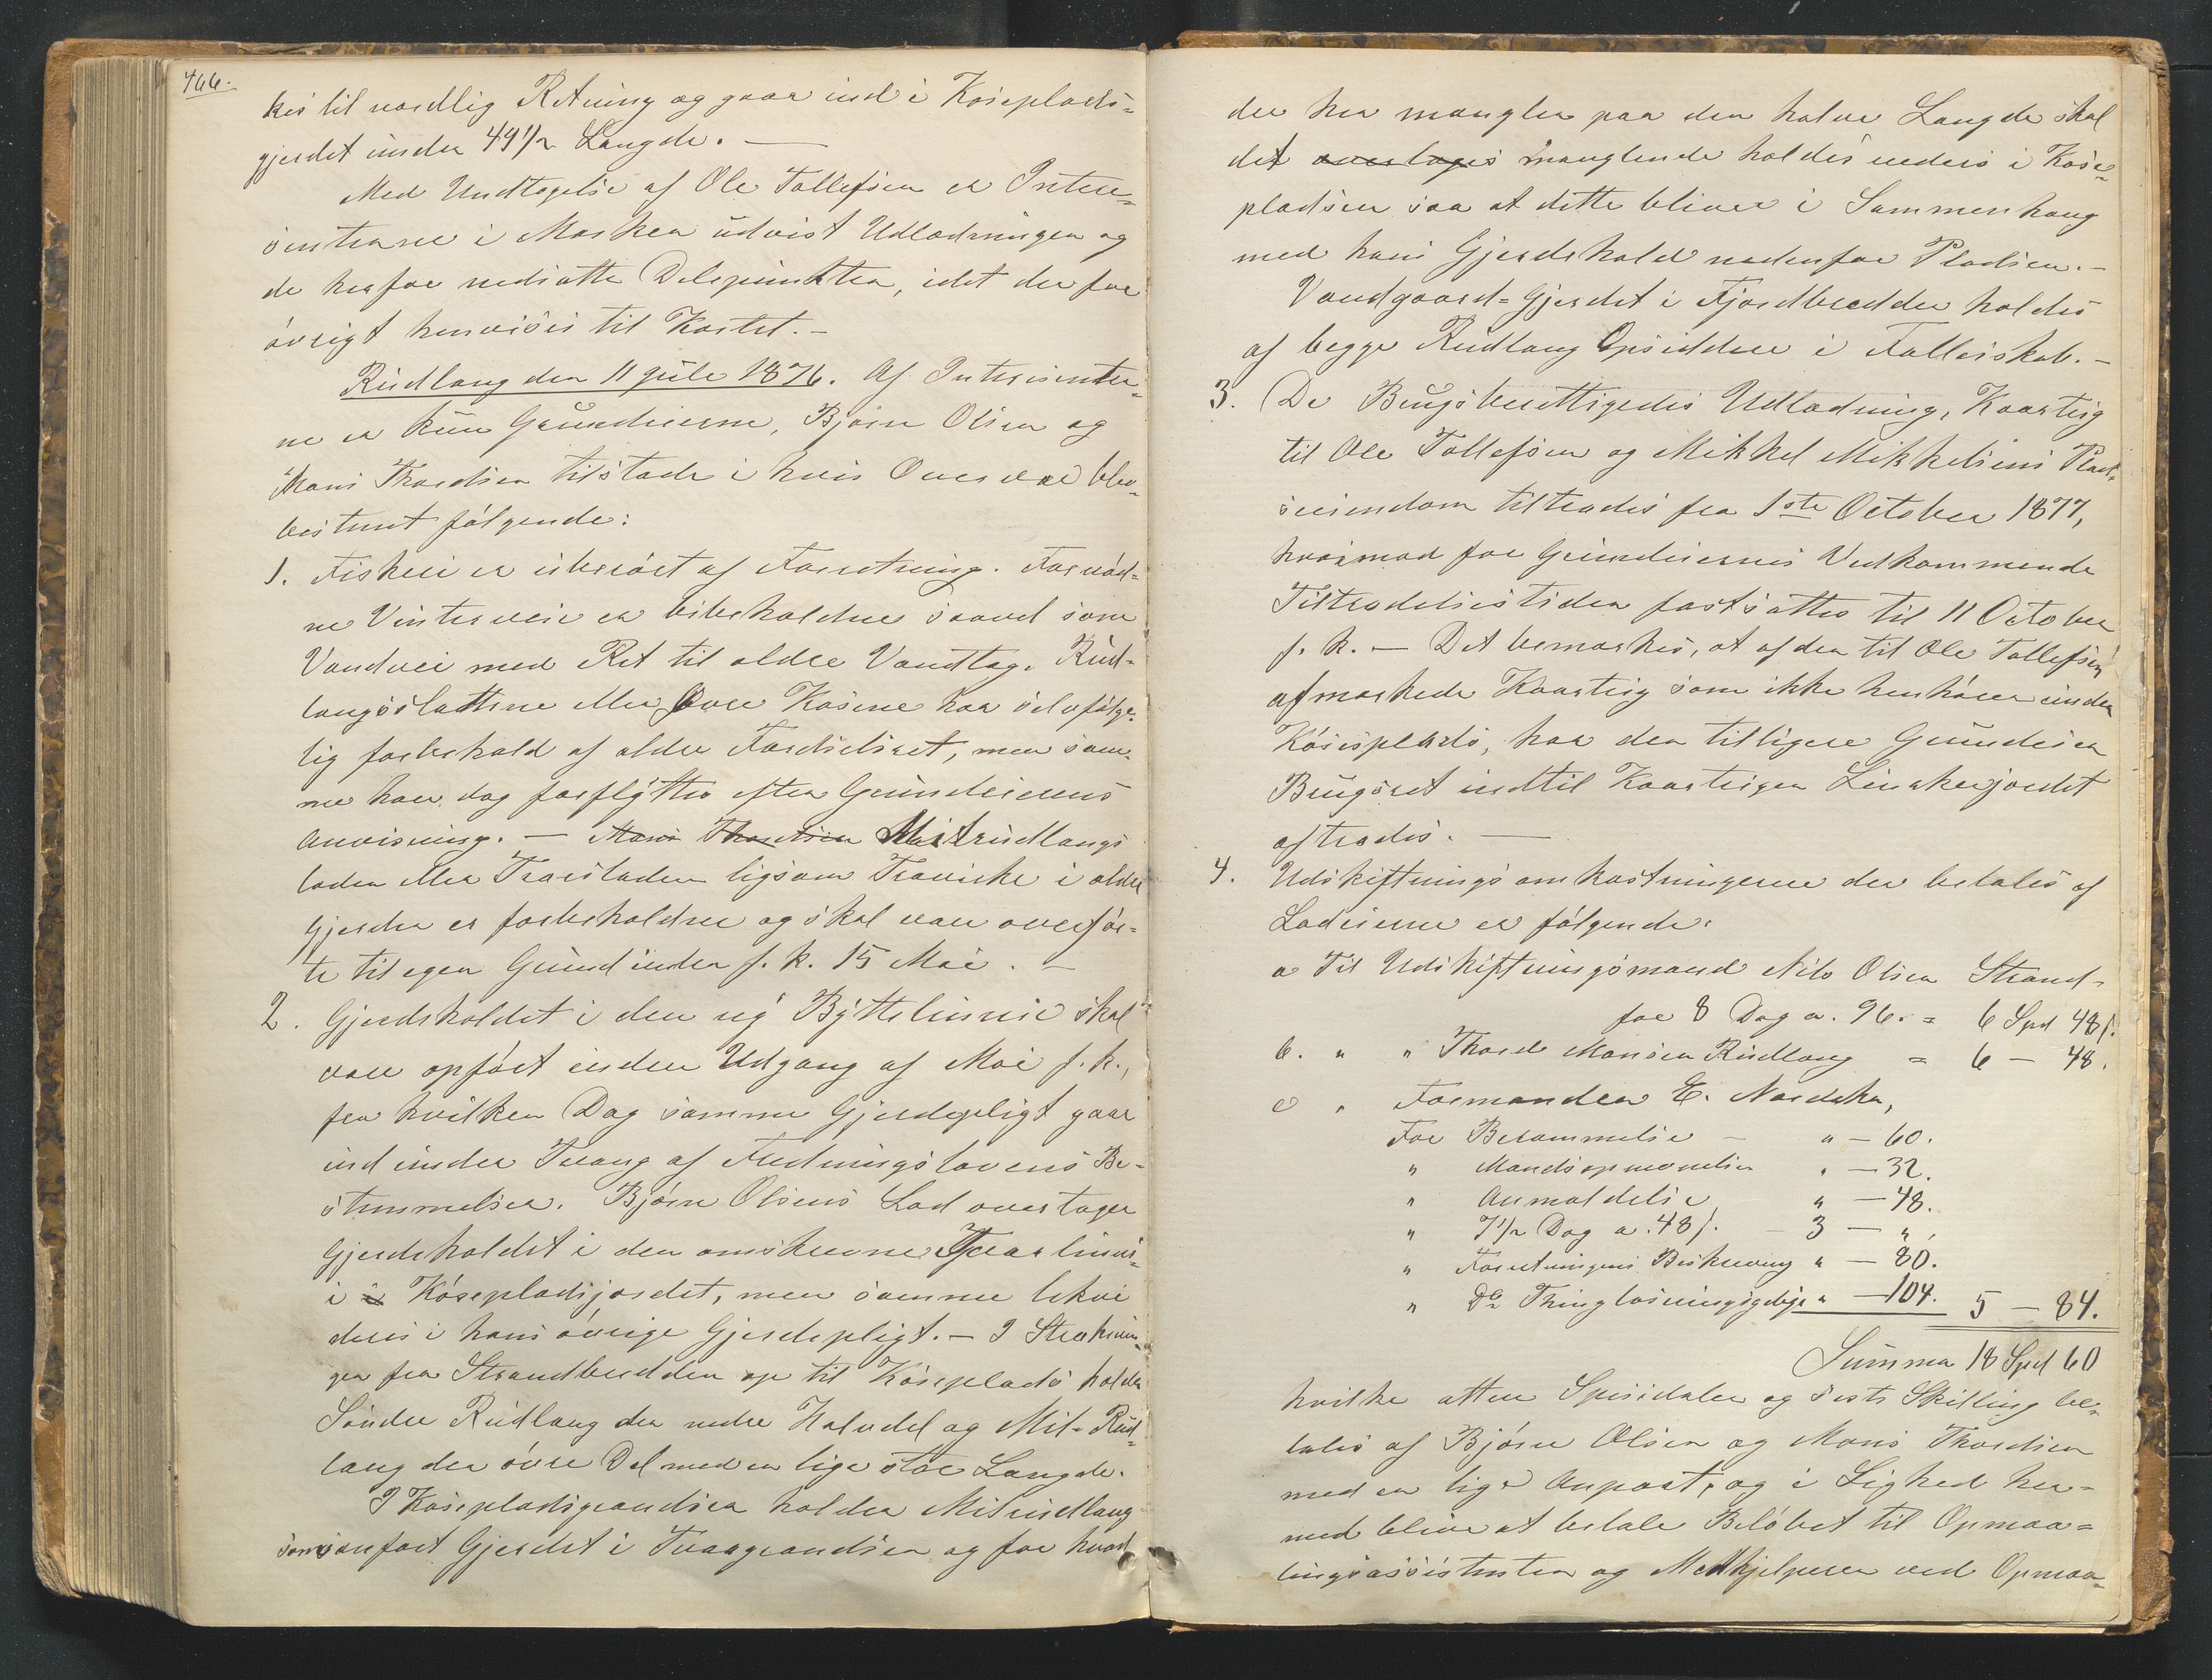 466.
kes til nordlig Retning og gaar ind i Koseplads-
gjerdet under 49 1/2 Længde. —
Med Undtagelse af Ole Tollefsen er Intere-
senterne i Marken udvist Udlodningen og
de herfor nedsatte Delepunkter, idet der for
øvrigt henvises til Kartet. –
Rudlang den 11 Juli 1876. Af Interesenter-
ne er kun Grundeierne, Bjørn Olsen og
Mons Thordsen tilstæde i hvis Overvær blev
bestemt følgende:
1. Fiskeri er uberørt af Forretning. Fornød-
ne Vinterveie er bibeholdne saavel som
Vandvei med Ret til ældre Vandtag. Rud-
langsslottene eller Øvre Koserne har selvfølge-
lig forbehold af ældre Færdselsret, men sam-
me kan dog forflyttes efter Grundeierens
Anvisning. — Mons Thordsen Mitrudlangs
laden eller Traersladen ligsom Travirke i ældre
Gjerder er forbeholdne og skal være overfør-
te til egen Grund inden f. k. 15 Mai. –
2. Gjerdeholdet i den ny Byttelinnie skal
være opført inden Udgang af Mai f. k.,
fra hvilken Dag samme Gjerdepligt gaar
ind under Tvang af Fredningslovens Be-
stemmelser. Bjørn Olsens Lod overtager
Gjerdeholdet i den omskrevne Tværlinie
i Kósepladsjordet, men samme bekoi
deres i hans øvrige Gjerdepligt. — I Stræknin-
gen fra Strandbredden op til Kóseplads holder
Søndre Rudlang den nedre Halvdel og Mit-Rud-
lang den øvre Del med en lige stor Længde.
I Kosepladsgrændsen holder Mitrudlang
som anført Gjerdet i Tværgrændsen og for hvad
der her mangler paa den halve Længde skal
det overtages manglende holdes nederst i Kose-
pladsen saa at dette bliver i Sammenhæng
med hans Gjerdehold nedenfor Pladsen. –
Vandgaard-Gjerdet i Fjordbredden holdes
af begge Rudlang Opsiddere i Fællesskab. –
3. De Brugsberettigedes Udlodning, Kaarteig
til Ole Tollefsen og Mikkel Mikkelsens Plad-
seiendom tiltrædes fra 1ste October 1877,
hvorimod for Grundeiernes Vedkommende
Tiltrædelsestiden fastsættes til 11 October
f. k. — Det bemærkes, at af den til Ole Tollefsen
afmærkede Kaarteig som ikke henhører under
Kósesplads, har den tilligere Grundeier
Brugsret indtil Kaarteigen Linakerjordet
aftrædes. —
4. Udskiftningsomkostningerne der betales af
Lodeierne er følgende:
a Til Udskiftningsmand Nils Olsen Strand-
for 8 Dag a. 96. = 6 Spd 48 s.
b. " " Thord Monsen Rudlang = 6 — 48.
c " Formanden E. Nordaker,
For Berammelse — " — 60.
" Mandsopmondlen " — 32.
" Anmeldelse " — 48.
" 7 1/2 Dag a. 48 s. — 3 — " .
" Forretningens Beskrivning " — 80.
" Do Thinglæsningsgebyr " — 104. 5 — 84.
Summa 18 Spd 60
hvilke atten Speisidaler og sexti Skilling be-
tales af Bjørn Olsen og Mons Thordsen
med en lige Anpart, og i Lighed her-
med blive at betale Beløbet til Opmaa-
lingsassistenten og Medhjelperen ved Opmaa-